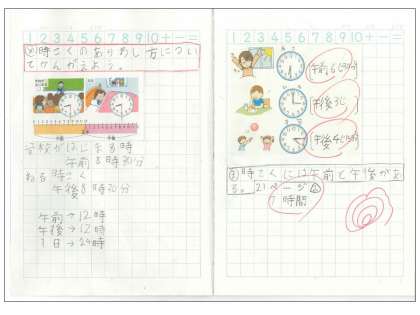 1 2 3 4 5 6 7 8 9 10 + - =
め 時こくのあらわし方について
てかんがえよう。
学校がはじまる時
午前8時30分
ねる時こく
午後8時30分
午前→12時
午後→12時
1日→24時
1 2 3 4 5 6 7 8 9 10 + - =
午前6じ30分
午後3じ
午後4じ15分
ま 時こくには午前と午後があ
る。21ページ
7時間